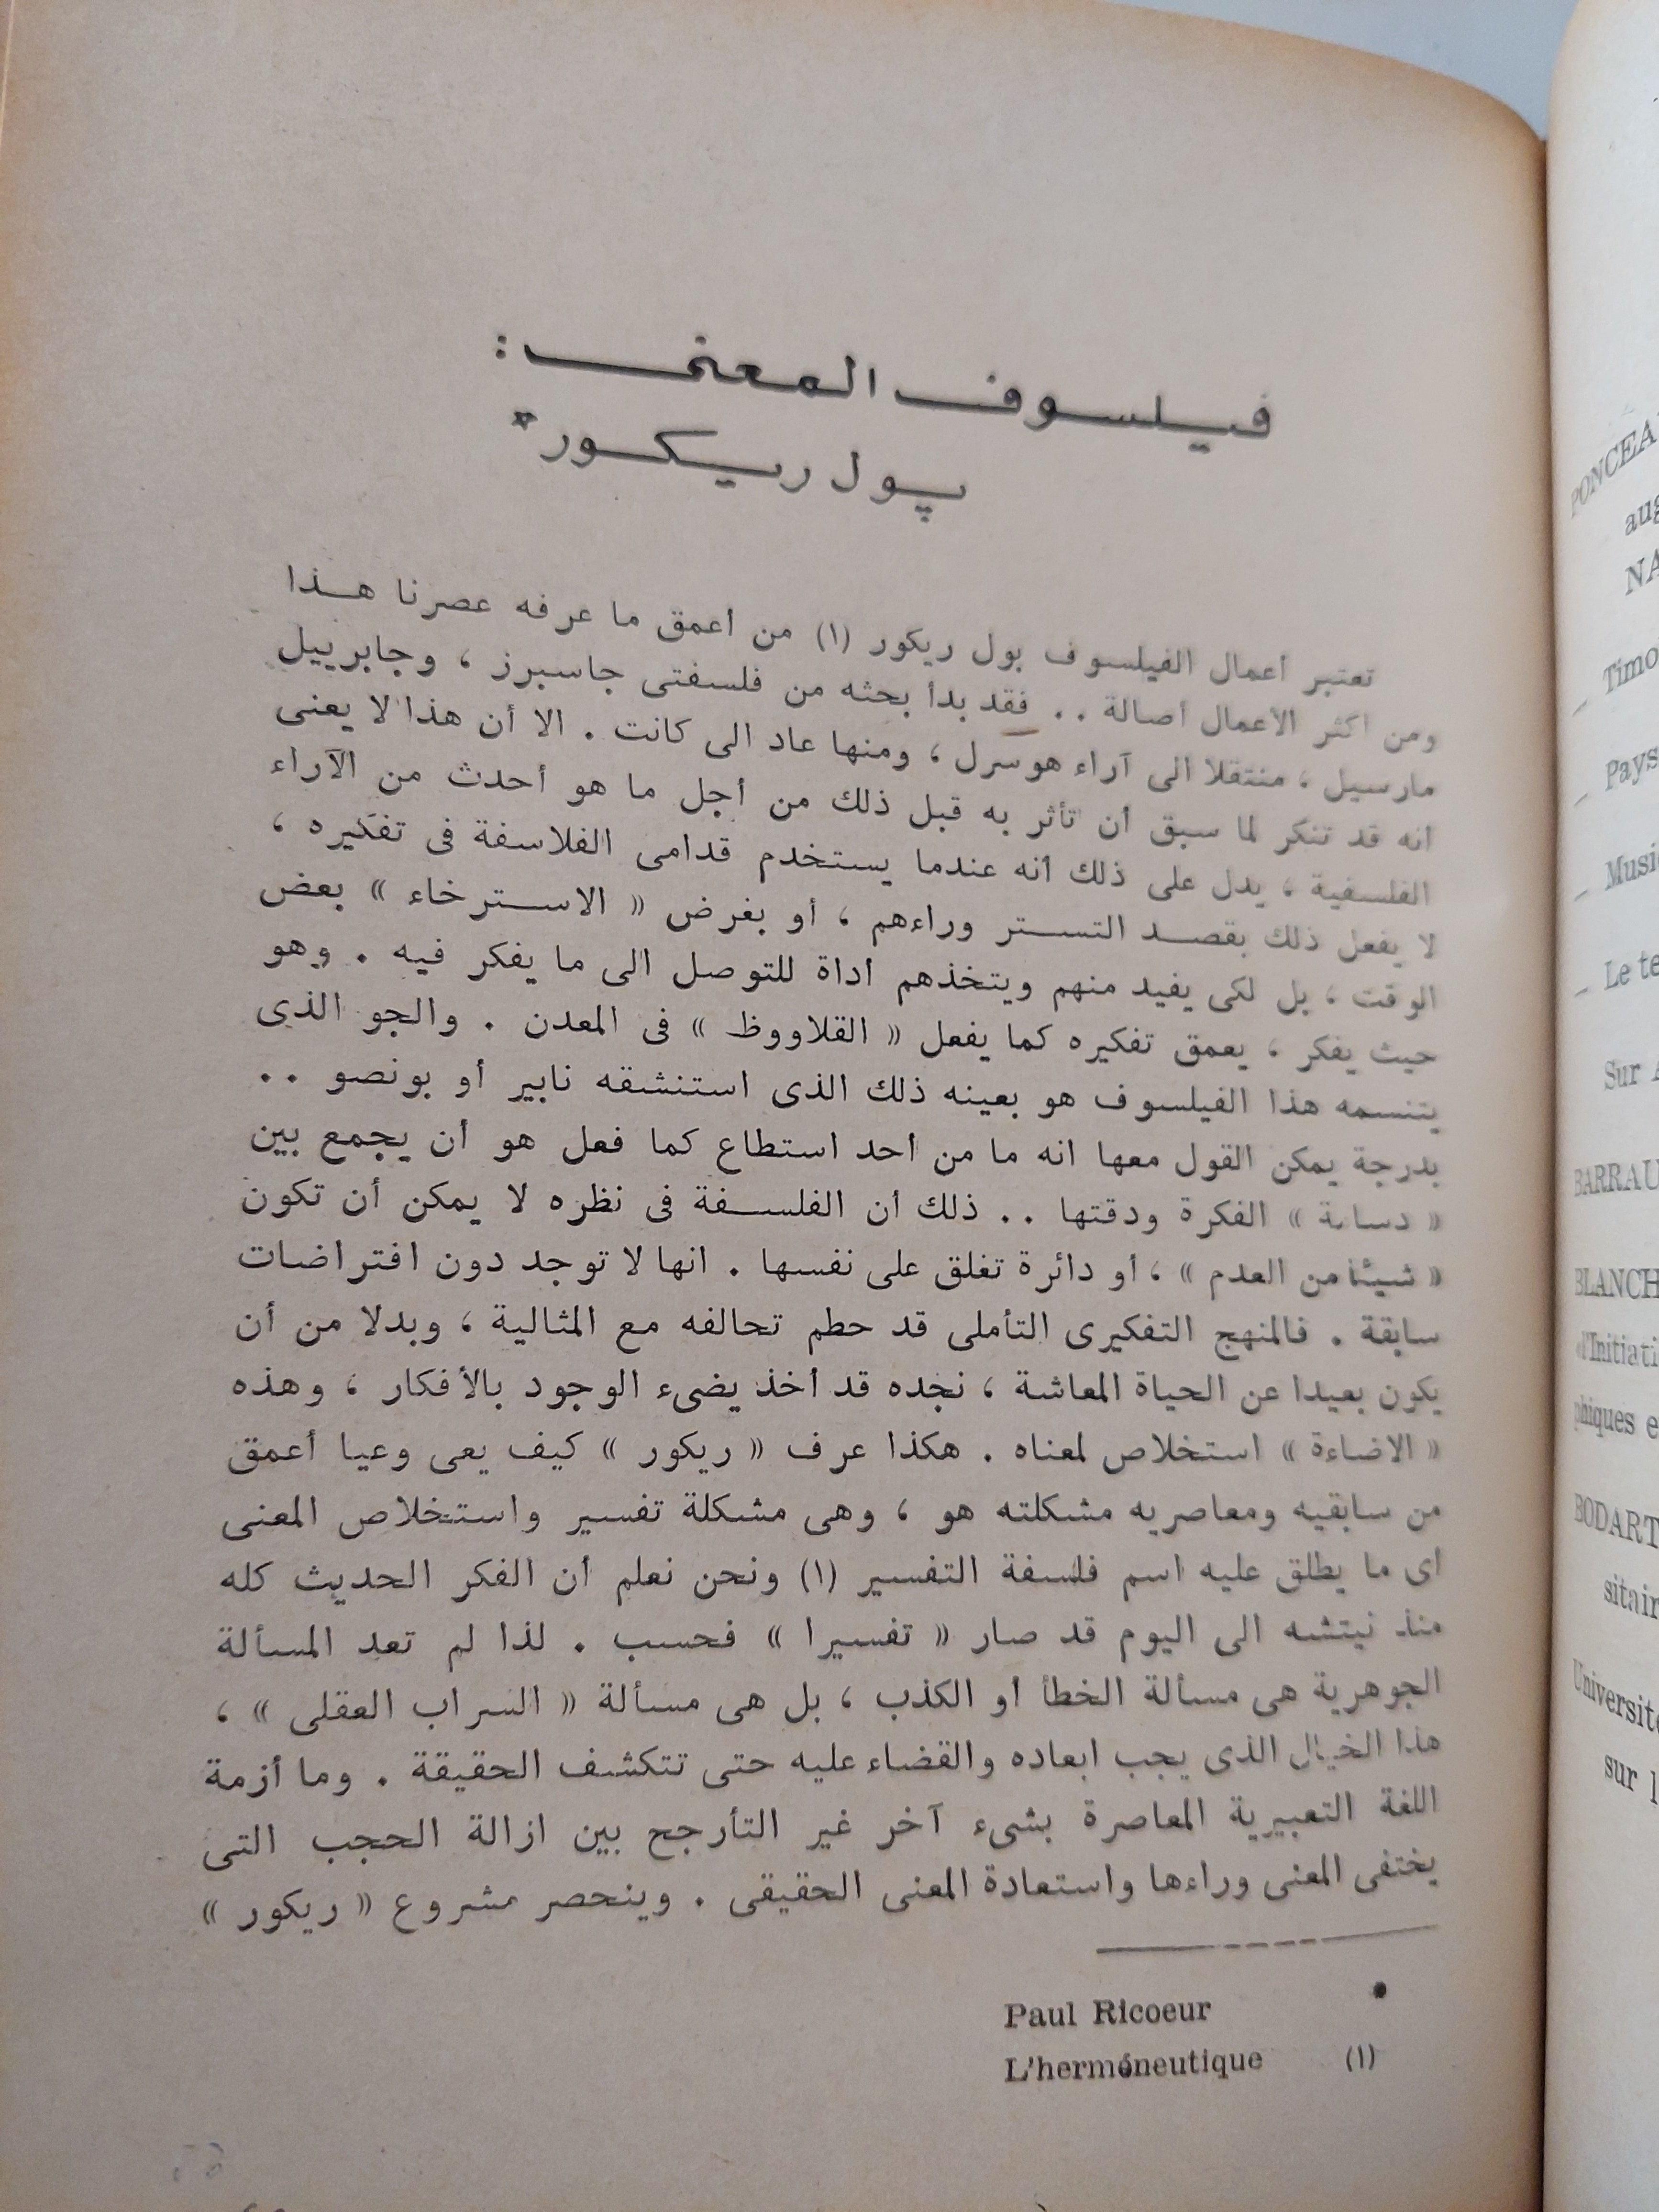 فيلسوف المعنى :
پول ريكور *
تعتبر أعمال الفيلسوف بول ريكور (١) من أعمق ما عرفه عصرنا هـذا
ومن أكثر الأعمال أصالة . . فقد بدأ بحثه من فلسفتى جاسبرز ، وجابرييل
مارسيل ، منتقلا الى آراء هوسرل ، ومنها عاد الى كانت . الا أن هذا لا يعنى
أنه قد تنكر لما سبق أن تأثر به قبل ذلك من أجل ما هو أحدث من الآراء
الفلسفية ، يدل على ذلك أنه عندما يستخدم قدامى الفلاسفة فى تفكيره ،
لا يفعل ذلك بقصـد التستـر وراءهم ، أو بغرض « الاسـترخاء » بعض
الوقت ، بل لكى يفيد منهم ويتخذهم أداة للتوصل الى ما يفكر فيه . وهو
حيث يفكر ، يعمق تفكيره كما يفعل « القلاووظ » فى المعدن . والجو الذى
يتنسمه هذا الفيلسوف هو بعينه ذلك الذى استنشقه نابير أو بونصو . .
بدرجة يمكن القول معها انه ما من أحد استطاع كما فعل هو أن يجمع بين
« » الفكرة ودقتها . . ذلك أن الفلسـفة فى نظره لا يمكن أن تكون
« شيئا من العدم » ، أو دائرة تغلق على نفسها . انها لا توجد دون افتراضات
سابقة . فالمنهج التفكيرى التأملى قد حطم تحالفه مع المثالية ، وبدلا من أن
يكون بعيدا عن الحياة المعاشة ، نجده قد أخذ يضىء الوجود بالأفكار ، وهذه
« الاضاءة » استخلاص لمعناه . هكذا عرف « ريكور » كيف يعى وعيا أعمق
من سابقيه ومعاصريه مشكلته هو ، وهى مشكلة تفسير واستخلاص المعنى
أى ما يطلق عليه اسم فلسفة التفسير (١) ونحن نعلم أن الفكر الحديث كله
منذ نيتشه الى اليوم قد صار « تفسيرا » فحسب . لذا لم تعد المسألة
الجوهرية هى مسألة الخطأ أو الكذب ، بل هى مسألة « السراب العقلى » ،
هذا الخيال الذى يجب ابعاده والقضاء عليه حتى تتكشف الحقيقة . وما أزمة
اللغة التعبيرية المعاصرة بشىء آخر غير التأرجح بين ازالة الحجب التى
يختفى المعنى وراءها واستعادة المعنى الحقيقى . وينحصر مشروع « ريكور »
* Paul Ricoeur
(١) L'herméneutique
PONCEA
aug
NA
Timo
Pays
Musi
Le te
Sur
BARRAU
BLANCH
d'Initiati
phiques e
BODART
sitair
Universit
sur l